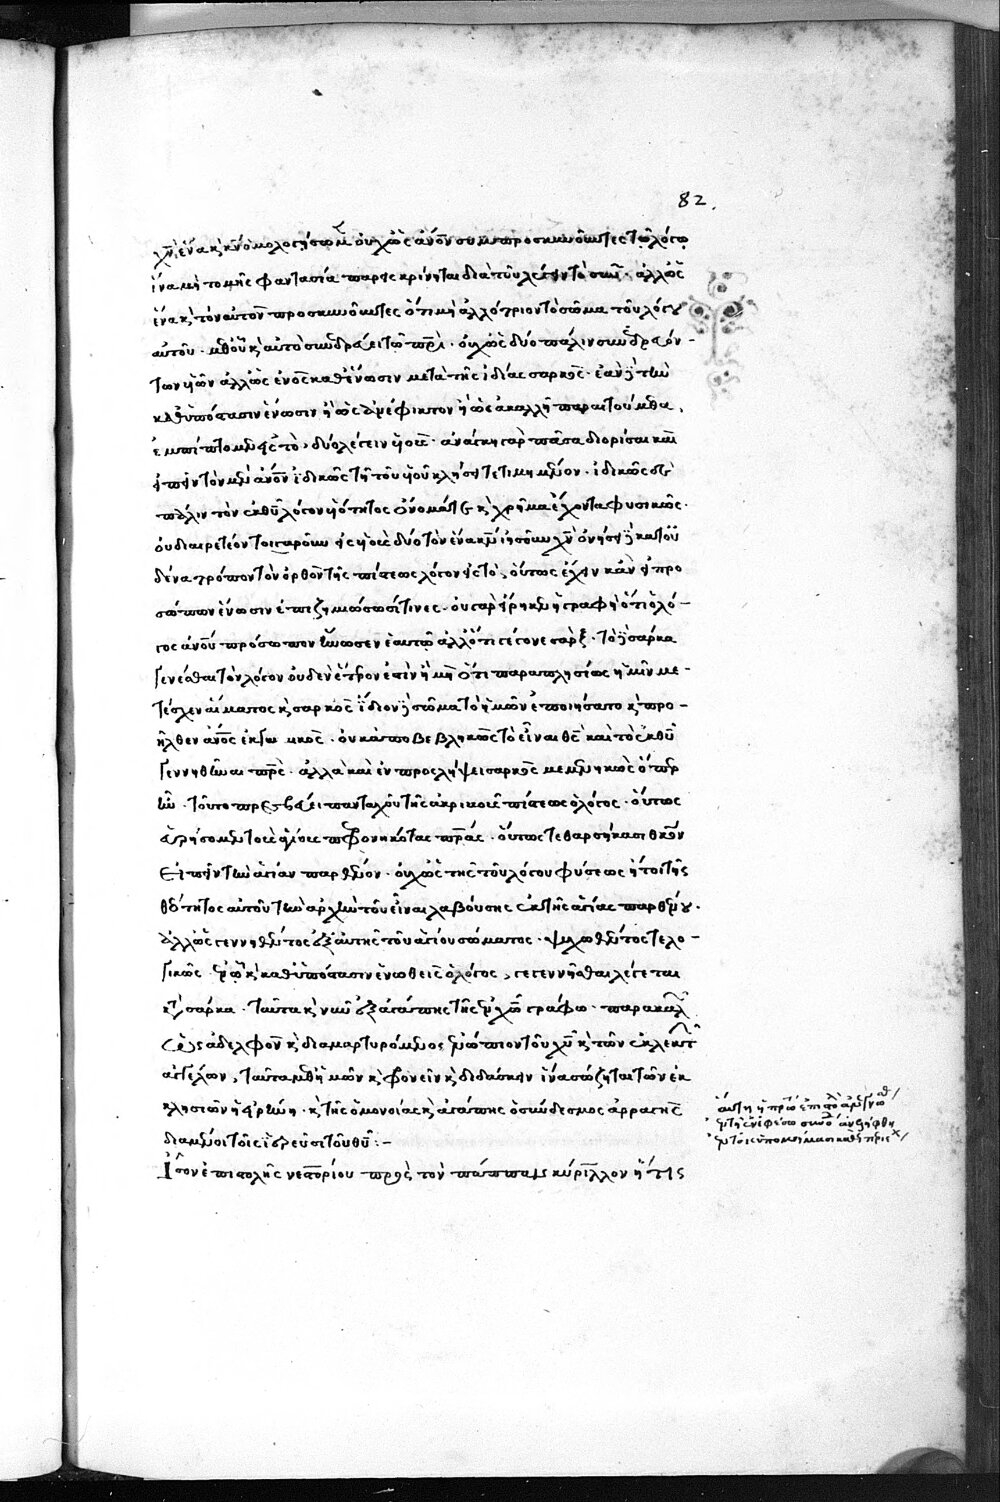 82.
χν̄ ἕνα κ̀ κν̄ ὁμολογήσωμ̄ οὐχ ὡς ἀνο̄ν συμπροσκυνοῦντες τῶ λόγω
ἵνα μὴ τομῆς φαντασία παρεισκρίνηται διὰ τοῦ λέγειν τὸ σύν· ἀλλ ὡς
ἕνα κ̀ τὸν αὐτὸν προσκυνοῦντες ὅτι μὴ ἀλλότριον τὸ σῶμα τοῦ λόγου
αὐτοῦ· μεθ οὗ κ̀ αὐτῶ συνεδρεύει τῶ πρ̄ι· οὐχ ὡς δύο πάλιν συνεδρευόν-
των υἱῶν ἀλλ ὡς ἑνὸς καθ ἕνωσιν μετὰ τῆς ἰδίας σαρκός· ἐὰν δὲ τὴν
καθ ὑπόστασιν ἕνωσιν ἢ ὡς ἀνέφικτον ἢ ὡς ἀκαλλῆ παραιτούμεθα,
ἐμπίπτομεν εἰς τὸ, δύο λέγειν υἱούς· ἀνάγκη γὰρ πᾶσα διορίσαι καὶ
εἰπεῖν τὸν μὲν ἀνο̄ν ἰδικῶς τῆ τοῦ υἱοῦ κλήσει τετιμημένον· ἰδικῶς δὲ
πάλιν τὸν ἐκ θῦ λόγον υἱότητος ὄνομά τε κ̀ χρῆμα ἔχοντα φυσικῶς·
οὐ διαιρετέον τοιγαροῦν εἰς υἱοὺς δύο τὸν ἕνα κν̄ ἰησοῦν χν̄ ὀνήσει δὲ κατ οὐ
δένα τρόπον τὸν ὀρθὸν τῆς πίστεως λόγον εἰς τὸ, οὕτως ἔχειν κἂν εἰ προ
σώπων ἕνωσιν ἐπιφημίζωσί τινες· οὐ γὰρ εἴρηκεν ἡ γραφὴ ὅτι ὁ λό-
γος ἀνοῦ πρόσωπον ἥνωσεν ἑαυτῶ ἀλλ ὅτι γέγονε σάρξ· τὸ δὲ σάρκα
γενέσθαι τὸν λόγον οὐδὲν ἕτερον ἐστὶν εἰ μὴ ὅτι παραπλησίως ἡμῖν με-
τέσχεν αἵματος κ̀ σαρκὸς ἴδιον δὲ σῶμα τὸ ἡμῶν ἐποιήσατο κ̀ προ-
ῆλθεν ἀνο̄ς ἐκ γυναικὸς· οὐκ ἀποβεβληκὼς τὸ εἶναι θς̄ καὶ τὸ ἐκ θῦ
γεννηθῆναι πρ̄ς· ἀλλὰ καὶ ἐν προσλήψει σαρκὸς μεμενηκὼς ὅπερ
ἦν· τοῦτο πρεσβεύει πανταχοῦ τῆς ἀκριβοῦς πίστεως ὁ λόγος· οὕτως
εὑρήσομεν τοὺς ἁγίους πεφρονηκότας πρ̄ας· οὕτως τεθαρσήκασι θκο̄ν
εἰπεῖν τὴν ἁγίαν παρθένον· οὐχ ὡς τῆς τοῦ λόγου φύσεως ἤτοι τῆς
θεότητος αὐτοῦ τὴν ἀρχὴν τοῦ εἶναι λαβούσης ἐκ τῆς ἁγίας παρθένου·
ἀλλ ὡς γεννηθέντος ἐξ αὐτῆς τοῦ ἁγίου σώματος· ψυχωθέντος τε λο-
γικῶς· ᾧ κ̀ καθ ὑπόστασιν ἑνωθεὶς ὁ λόγος, γεγεννῆσθαι λέγεται
κατὰ σάρκα· ταῦτα κ̀ νῦν ἐξ ἀγάπης τῆς ἐν χω̄ γράφω· παρακαλῶ
ὡς ἀδελφὸν κ̀ διαμαρτυρόμενος ἐνώπιον τοῦ χῦ κ̀ τῶν ἐκλεκτῶν
ἀγγέλων, ταῦτα μεθ ἡμῶν κ̀ φρονεῖν κ̀ διδάσκειν ἵνα σώζηται τῶν ἐκ
κλησιῶν ἡ εἰρήνη· κ̀ τῆς ὁμονοίας κ̀ ἀγάπης ὁ σύνδεσμος ἀρραγὴς
διαμένοι τοῖς ἱερεῦσι τοῦ θῦ:-
Ἴσον ἐπιστολῆς νεστορίου πρὸς τὸν πάππαν κύριλλον ἥτις
αὕτη ἡ πρώ ἐπιστολὴ ἀνεγνώσθ
ἐν τῆ ἐν ἐφέσω συνόδ ἀνεδήφθη
ἐν τοῖς ὑπομνήμασι καθ πρὶς